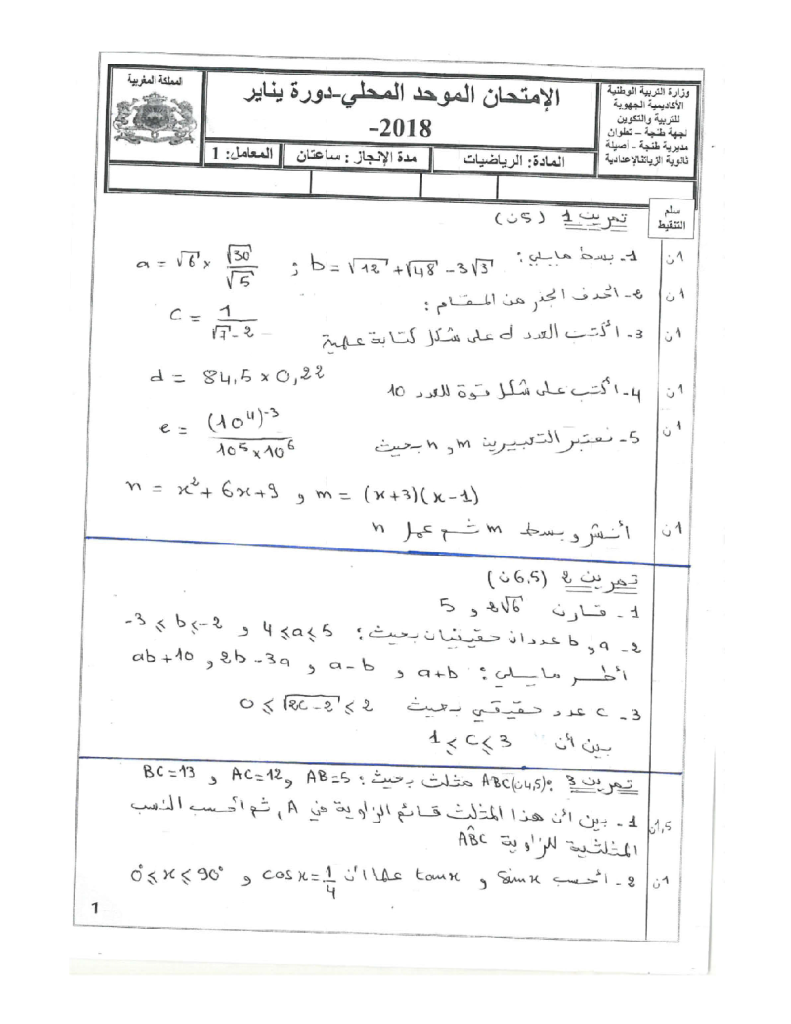 المملكة المغربية
الإمتحان الموحد المحلي-دورة يناير
2018-
وزارة التربية الوطنية
الأكاديمية الجهوية
للتربية والتكوين
لجهة طنجة – تطوان
مديرية طنجة - أصيلة
ثانوية الزياتنالإعدادية
المادة: الرياضيات
مدة الإنجاز : ساعتان
المعامل: 1
سلم
التنقيط
تمرين 1 (5ن)
1ن 1- بسط مايلي: a = √6 × √30/√5 ; b = √12 + √48 - 3√3
1ن 2- احذف الجذر من المقام: c = 1/(√7 - 2)
1ن 3- أكتب العدد d على شكل كتابة علمية
d = 84,5 × 0,22
1ن 4- أكتب على شكل قوة للعدد 10
e = (10⁴)⁻³/(10⁵ × 10⁶)
1ن 5- نعتبر التعبيرين m و n بحيث
m = (x+3)(x-1) و n = x² + 6x + 9
1ن أنشر و بسط m ثم عمل n
تمرين 2 (6,5ن)
1- قارن 2√6 و 5
2- a و b عددان حقيقيان بحيث: 4 ≤ a ≤ 5 و -3 ≤ b ≤ -2
أطر مايلي: a+b و a-b و 2b-3a و ab+10
3- c عدد حقيقي بحيث 0 ≤ √(2c-2) ≤ 2
بين أن 1 ≤ c ≤ 3
تمرين 3 (4,5ن): ABC مثلث بحيث: AB=5 و AC=12 و BC=13
1,5ن 1- بين أن هذا المثلث قائم الزاوية في A, ثم أحسب النسب
المثلثية للزاوية AB̂C
1ن 2- أحسب sinx و tanx علما أن cosx = 1/4 و 0° ≤ x ≤ 90°
1